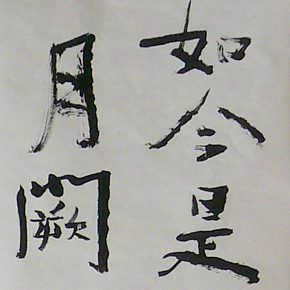 如今是
月阙